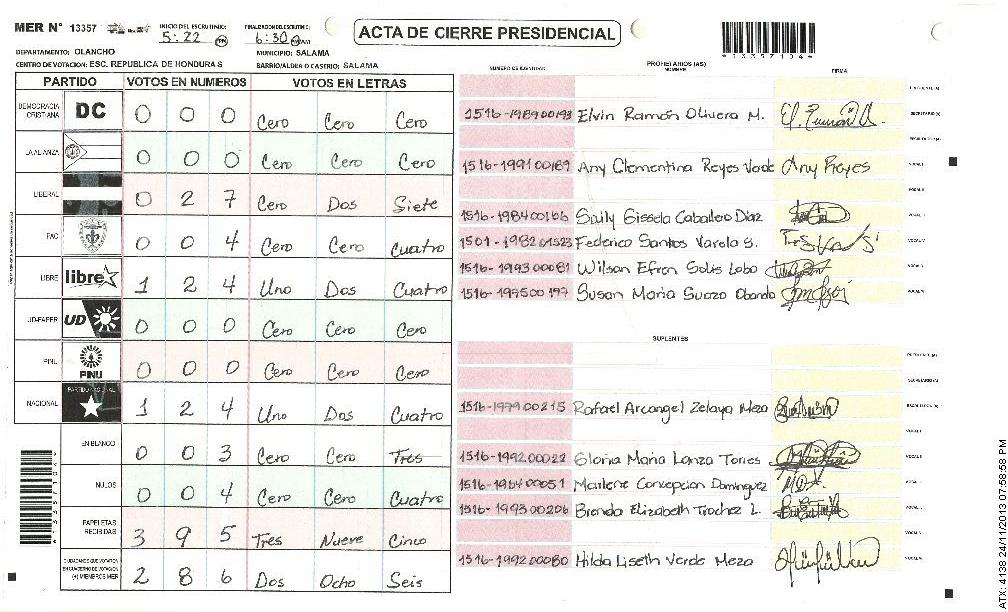 MER N° 13357
INICIO DEL ESCRUTINIO: 5:22 PM
FINALIZACION DEL ESCRUTINIO: 6:30 PM
ACTA DE CIERRE PRESIDENCIAL
*13357104*
DEPARTAMENTO: OLANCHO
MUNICIPIO: SALAMA
CENTRO DE VOTACION: ESC. REPUBLICA DE HONDURAS
BARRIO/ALDEA O CASERIO: SALAMA
PARTIDO VOTOS EN NUMEROS VOTOS EN LETRAS
DEMOCRACIA CRISTIANA DC 0 0 0 Cero Cero Cero
LA ALIANZA 0 0 0 Cero Cero Cero
LIBERAL 0 2 7 Cero Dos Siete
PAC 0 0 4 Cero Cero Cuatro
LIBRE libre 1 2 4 Uno Dos Cuatro
UD-FAPER UD 0 0 0 Cero Cero Cero
PINU PINU 0 0 0 Cero Cero Cero
NACIONAL PARTIDO NACIONAL 1 2 4 Uno Dos Cuatro
EN BLANCO 0 0 3 Cero Cero Tres
NULOS 0 0 4 Cero Cero Cuatro
PAPELETAS RECIBIDAS 3 9 5 Tres Nueve Cinco
CIUDADANOS QUE VOTARON EN CUADERNO DE VOTACION (+) MIEMBROS MER 2 8 6 Dos Ocho Seis
NUMERO DE IDENTIDAD PROPIETARIOS (AS) NOMBRE FIRMA
PRESIDENTE (A)
1516-1989 00193 Elvin Ramón Olivera M. SECRETARIO (A)
ESCRUTADOR (A)
1516-1991 00169 Any Clementina Reyes Verde Any Reyes VOCAL I
VOCAL II
1516-1984 00166 Saily Gissela Caballero Diaz VOCAL III
1501-1982 01523 Federico Santos Varela S. VOCAL IV
1516-1993 00081 Wilson Efren Solis Lobo VOCAL V
1516-1975 00 197 Susan Maria Suazo Obando VOCAL VI
SUPLENTES
PRESIDENTE (A)
SECRETARIO (A)
1516-1979 00215 Rafael Arcangel Zelaya Meza ESCRUTADOR (A)
VOCAL I
1516-1992 00022 Gloria Maria Lanza Torres VOCAL II
1516-1984 00051 Marlene Concepcion Dominguez VOCAL III
1516-1993 00206 Brenda Elizabeth Trochez L. VOCAL IV
VOCAL V
1516-1992 00080 Hilda Liseth Verde Meza VOCAL VI
ATX: 4138 24/11/2013 07:58:58 PM